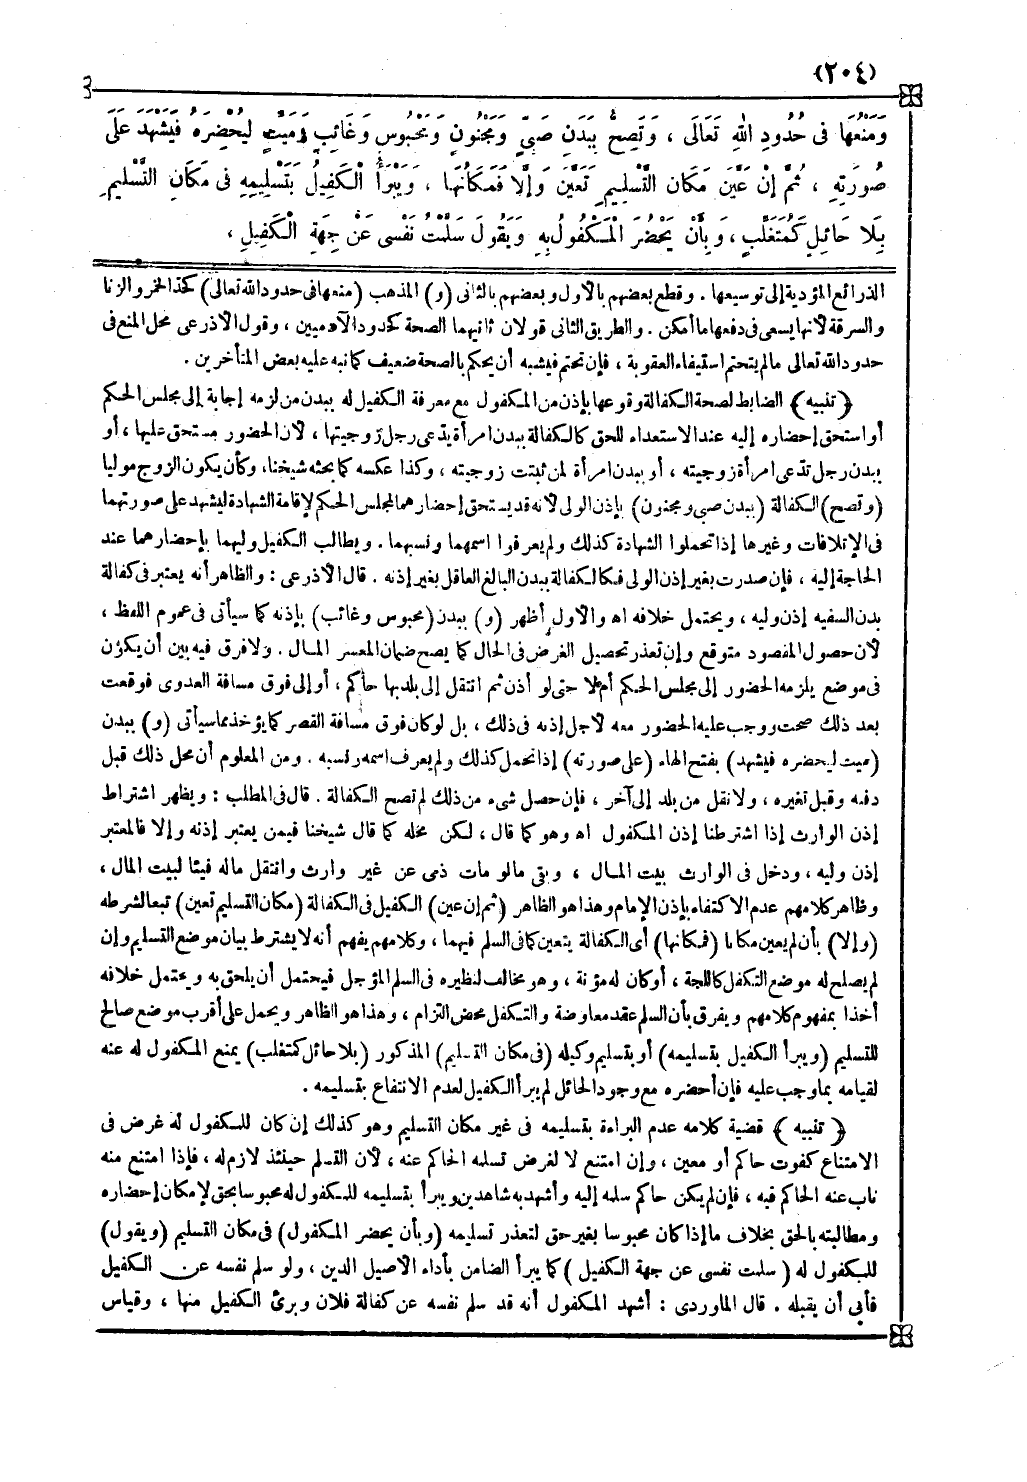 (٢٠٤)
وَمَنْعُهَا فِى حُدُودِ اللهِ تَعَالَى ، وَتَصِحُّ بِبَدَنِ صَبِىٍّ وَمَجْنُونٍ وَمَحْبُوسٍ وَغَائِبٍ وَمَيِّتٍ لِيُحْضِرَهُ فَيَشْهَدَ عَلَى
صُورَتِهِ ، ثُمَّ إِنْ عَيَّنَ مَكَانَ التَّسْلِيمِ تَعَيَّنَ وَإِلَّا فَمَكَانُهَا ، وَيَبْرَأُ الْكَفِيلُ بِتَسْلِيمِهِ فِى مَكَانِ التَّسْلِيمِ
بِلَا حَائِلٍ كَمُتَغَلِّبٍ ، وَبِأَنْ يَحْضُرَ الْمَكْفُولُ بِهِ وَيَقُولَ سَلَّمْتُ نَفْسِى عَنْ جِهَةِ الْكَفِيلِ ،
الذرائع المؤدية إلى توسيعها . وقطع بعضهم بالأول وبعضهم بالثانى (و) المذهب (منعها فى حدود الله تعالى) كحد الخمر والزنا
والسرقة لأنها يسعى فى دفعها ما أمكن . والطريق الثانى قولان ثانيهما الصحة كحدود الآدميين ، وقول الأذرعى محل المنع فى
حدود الله تعالى مالم يتحتم استيفاء العقوبة ، فإن تحتم فيشبه أن يحكم بالصحة ضعيف كما نبه عليه بعض المتأخرين .
﴿ تنبيه ﴾ الضابط لصحة الكفالة وقوعها بإذن من المكفول مع معرفة الكفيل له ببدن من لزمه إجابة إلى مجلس الحكم
أو استحق إحضاره إليه عند الاستعداء للحق كالكفالة ببدن امرأة يدعى رجل زوجيتها ، لأن الحضور مستحق عليها ، أو
ببدن رجل تدّعى امرأة زوجيته ، أو ببدن امرأة لمن ثبتت زوجيته ، وكذا عكسه كما بحثه شيخنا، وكأن يكون الزوج موليا
(وتصح) الكفالة (ببدن صبى ومجنون) بإذن الولى لأنه قد يستحق إحضارهما لمجلس الحكم لإقامة الشهادة ليشهد على صورتهما
فى الإتلافات وغيرها إذا تحملوا الشهادة كذلك ولم يعرفوا اسمهما ونسبهما . ويطالب الكفيل وليهما بإحضارهما عند
الحاجة إليه ، فإن صدرت بغير إذن الولى فكالكفالة ببدن البالغ العاقل بغير إذنه . قال الأذرعى : والظاهر أنه يعتبر فى كفالة
بدن السفيه إذن وليه ، ويحتمل خلافه اه والأول أظهر (و) ببدن (محبوس وغائب) بإذنه كما سيأتى فى عموم اللفظ ،
لأن حصول المقصود متوقع وإن تعذر تحصيل الغرض فى الحال كما يصح ضمان المعسر المال . ولا فرق فيه بين أن يكون
فى موضع يلزمه الحضور إلى مجلس الحكم أم لا حتى لو أذن ثم انتقل إلى بلد بها حاكم ، أو إلى فوق مسافة العدوى فوقعت
بعد ذلك صحت ووجب عليه الحضور معه لأجل إذنه فى ذلك ، بل لو كان فوق مسافة القصر كما يؤخذ مما سيأتى (و) ببدن
(ميت ليحضره فيشهد) بفتح الهاء (على صورته) إذا تحمل كذلك ولم يعرف اسمه ونسبه . ومن المعلوم أن محل ذلك قبل
دفنه وقبل تغيره ، ولا نقل من بلد إلى آخر ، فإن حصل شىء من ذلك لم تصح الكفالة . قال فى المطلب : ويظهر اشتراط
إذن الوارث إذا اشترطنا إذن المكفول اه وهو كما قال ، لكن محله كما قال شيخنا فيمن يعتبر إذنه وإلا فالمعتبر
إذن وليه ، ودخل فى الوارث بيت المال ، وبقى مالو مات ذمى عن غير وارث وانتقل ماله فيئا لبيت المال ،
وظاهر كلامهم عدم الاكتفاء بإذن الإمام وهذا هو الظاهر (ثم إن عين) الكفيل فى الكفالة (مكان التسليم تعين) تبعا لشرطه
(وإلا) بأن لم يعين مكانا (فمكانها) أى الكفالة يتعين كما فى السلم فيهما ، وكلامهم يفهم أنه لا يشترط بيان موضع التسليم وإن
لم يصلح له موضع التكفل كاللجة ، أو كان له مؤنة ، وهو مخالف لنظيره فى السلم المؤجل فيحتمل أن يلحق به ويحتمل خلافه
أخذا بمفهوم كلامهم ويفرق بأن السلم عقد معاوضة والتكفل محض التزام ، وهذا هو الظاهر ويحمل على أقرب موضع صالح
للتسليم (ويبرأ الكفيل بتسليمه) أو بتسليم وكيله (فى مكان التسليم) المذكور (بلا حائل كمتغلب) يمنع المكفول له عنه
لقيامه بما وجب عليه فإن أحضره مع وجود الحائل لم يبرأ الكفيل لعدم الانتفاع بتسليمه .
﴿ تنبيه ﴾ قضية كلامه عدم البراءة بتسليمه فى غير مكان التسليم وهو كذلك إن كان للمكفول له غرض فى
الامتناع كفوت حاكم أو معين ، وإن امتنع لا لغرض تسلمه الحاكم عنه ، لأن التسلم حينئذ لازم له ، فإذا امتنع منه
ناب عنه الحاكم فيه ، فإن لم يكن حاكم سلمه إليه وأشهد به شاهدين ويبرأ بتسليمه للمكفول له محبوسا بحق لإمكان إحضاره
ومطالبته بالحق بخلاف ما إذا كان محبوسا بغير حق لتعذر تسليمه (وبأن يحضر المكفول) فى مكان التسليم (ويقول)
للمكفول له ( سلمت نفسى عن جهة الكفيل ) كما يبرأ الضامن بأداء الأصيل الدين ، ولو سلم نفسه عن الكفيل
فأبى أن يقبله . قال الماوردى : أشهد المكفول أنه قد سلم نفسه عن كفالة فلان وبرئ الكفيل منها ، وقياس